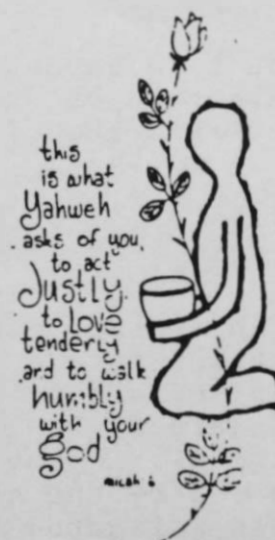 this
is what
Yahweh
asks of you,
to act
Justly.
to Love
tenderly
and to walk
humbly
with your
god
micah 6